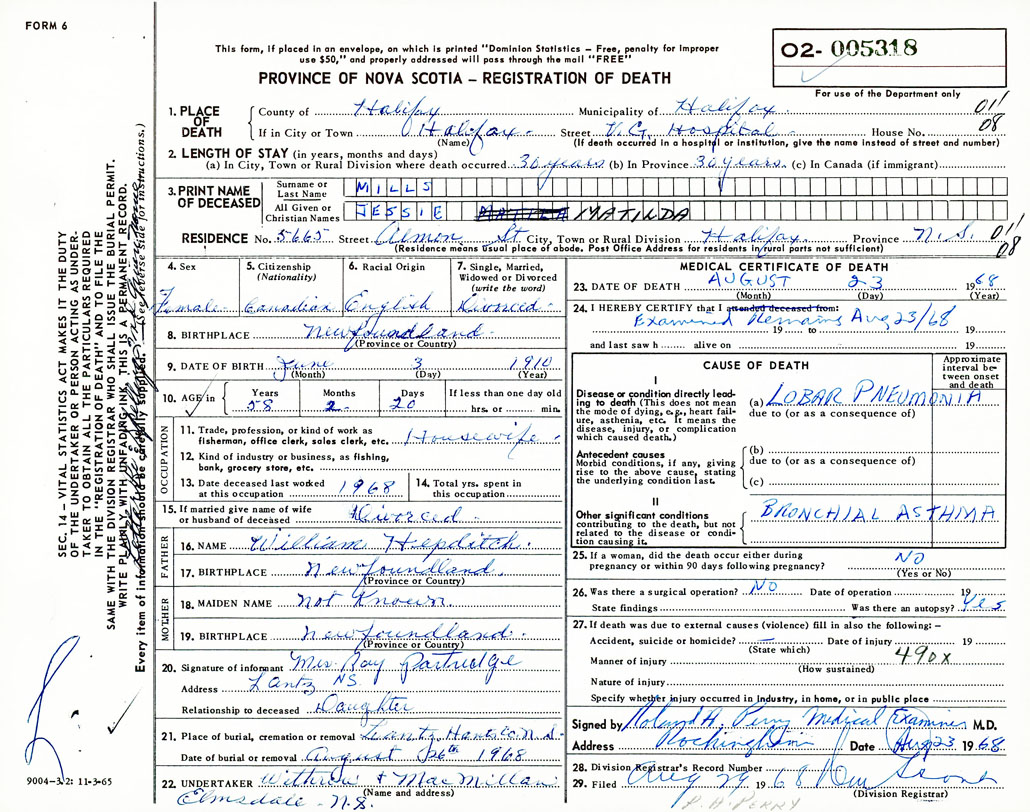 FORM 6
This form, if placed in an envelope, on which is printed "Dominion Statistics – Free, penalty for improper
use $50," and properly addressed will pass through the mail "FREE"
PROVINCE OF NOVA SCOTIA – REGISTRATION OF DEATH
02- 005318
For use of the Department only
SEC. 14 – VITAL STATISTICS ACT MAKES IT THE DUTY
OF THE UNDERTAKER OR PERSON ACTING AS UNDER-
TAKER TO OBTAIN ALL THE PARTICULARS REQUIRED
IN THE "REGISTRATION OF DEATH" AND TO FILE THE
SAME WITH THE DIVISION REGISTRAR WHO SHALL ISSUE THE BURIAL PERMIT.
WRITE PLAINLY WITH UNFADING INK. THIS IS A PERMANENT RECORD.
Every item of information should be carefully supplied. (See reverse side for instructions.)
1. PLACE OF DEATH
County of Halifax Municipality of Halifax 01/
If in City or Town Halifax Street V.G. Hospital House No. 08
(Name) (If death occurred in a hospital or institution, give the name instead of street and number)
2. LENGTH OF STAY (in years, months and days)
(a) In City, Town or Rural Division where death occurred 30 years (b) In Province 30 years (c) In Canada (if immigrant)
3. PRINT NAME OF DECEASED
Surname or Last Name MILLS
All Given or Christian Names JESSIE MATILDA
RESIDENCE No. 5665 Street Almon St. City, Town or Rural Division Halifax Province N.S. 01/
(Residence means usual place of abode. Post Office Address for residents in rural parts not sufficient) 08
4. Sex
Female
5. Citizenship (Nationality)
Canadian
6. Racial Origin
English
7. Single, Married, Widowed or Divorced (write the word)
Divorced
8. BIRTHPLACE Newfoundland
(Province or Country)
9. DATE OF BIRTH June 3 1910
(Month) (Day) (Year)
10. AGE in Years Months Days If less than one day old
58 2 20 hrs. or min.
OCCUPATION
11. Trade, profession, or kind of work as
fisherman, office clerk, sales clerk, etc. Housewife
12. Kind of industry or business, as fishing,
bank, grocery store, etc.
13. Date deceased last worked at this occupation 1968
14. Total yrs. spent in this occupation
15. If married give name of wife or husband of deceased Divorced
FATHER
16. NAME William Hepditch
17. BIRTHPLACE Newfoundland
(Province or Country)
MOTHER
18. MAIDEN NAME Not Known
19. BIRTHPLACE Newfoundland
(Province or Country)
20. Signature of informant Mrs. Ray Partridge
Address Lantz NS
Relationship to deceased Daughter
21. Place of burial, cremation or removal Lantz, Hants Co. N.S.
Date of burial or removal August 26th 1968
22. UNDERTAKER Withrow & MacMillan
(Name and address)
Elmsdale - N.S.
9004-3/2: 11-3-65
MEDICAL CERTIFICATE OF DEATH
23. DATE OF DEATH AUGUST 23 1968
(Month) (Day) (Year)
24. I HEREBY CERTIFY that I attended deceased from:
Examined Remains Aug 23/68
19 to 19
and last saw h alive on 19
CAUSE OF DEATH
Approximate interval between onset and death
I
Disease or condition directly lead-
ing to death (This does not mean
the mode of dying, e.g., heart fail-
ure, asthenia, etc. It means the
disease, injury, or complication
which caused death.)
(a) LOBAR PNEUMONIA
due to (or as a consequence of)
Antecedent causes
Morbid conditions, if any, giving
rise to the above cause, stating
the underlying condition last.
(b)
due to (or as a consequence of)
(c)
II
Other significant conditions
contributing to the death, but not
related to the disease or condi-
tion causing it.
BRONCHIAL ASTHMA
25. If a woman, did the death occur either during
pregnancy or within 90 days following pregnancy? NO
(Yes or No)
26. Was there a surgical operation? NO Date of operation 19
State findings Was there an autopsy? Yes
27. If death was due to external causes (violence) fill in also the following: –
Accident, suicide or homicide? Date of injury 19
(State which)
Manner of injury 490X
(How sustained)
Nature of injury
Specify whether injury occurred in industry, in home, or in public place
Signed by Roland A. Perry Medical Examiner M.D.
Address Rockingham Date Aug 23 1968
28. Division Registrar's Record Number
29. Filed Aug 29 1968
(Division Registrar)
R A PERRY